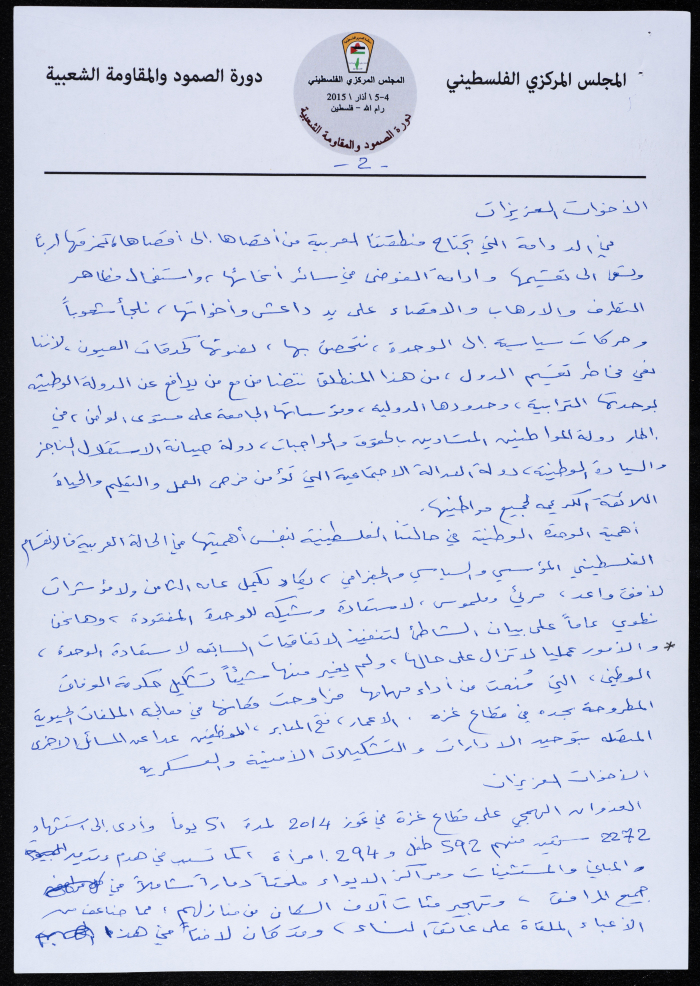 المجلس المركزي الفلسطيني
المجلس المركزي الفلسطيني
4-5 \ اذار \ 2015
رام الله - فلسطين
دورة الصمود والمقاومة الشعبية
دورة الصمود والمقاومة الشعبية
- 2 -
الأخوات العزيزات
في الدوامة التي تجتاح منطقتنا العربية من أقصاها إلى أقصاها، تمزقها إرباً
وتسعى الى تقسيمها وادامة الفوضى في سائر أنحائها، واستفحال مظاهر
التطرف والارهاب والاقصاء على يد داعش وأخواتها، نلجأ شعوباً
وحركات سياسية إلى الوحدة، نتحصن بها، لصونها كحدقات العيون، لأننا
نعي مخاطر تقسيم الدول، من هذا المنطلق نتضامن مع من يدافع عن الدولة الوطنية
بوحدتها الترابية، وحدودها الدولية، ومؤسساتها الجامعة على مستوى الوطن، في
إطار دولة المواطنين المتساوين بالحقوق والواجبات، دولة صيانة الاستقلال الناجز
والسيادة الوطنية، دولة العدالة الاجتماعية التي تؤمن فرص العمل والتعليم والحياة
اللائقة الكريمة لجميع مواطنيها.
أهمية الوحدة الوطنية في حالتنا الفلسطينية لنفس أهميتها في الحالة العربية فالانقسام
الفلسطيني المؤسسي والسياسي والجغرافي، يكاد يكمل عامه الثامن ولا مؤشرات
لأفق واعد، مرئي وملموس، لاستعادة وشيكة للوحدة المفقودة، وها نحن
نطوي عاماً على بيان الشاطئ لتنفيذ الاتفاقيات السابقة لاستعادة الوحدة،
* والأمور عمليا لا تزال على حالها، ولم يغير منها شيئاً تشكيل حكومة الوفاق
الوطني، التي مُنعت من أداء مهامها فراوحت مكانها في معالجة الملفات الحيوية
المطروحة بحده في قطاع غزة. الاعمار، فتح المعابر، الموظفين عدا عن المسائل الأخرى
المتصلة بتوحيد الادارات والتشكيلات الأمنية والعسكرية
الأخوات العزيزات
العدوان الهمجي على قطاع غزة في تموز 2014 لمدة 51 يوماً وأدى إلى استشهاد
2272 منهم 592 طفل و 294 إمرأة كما تسبب في هدم وتدمير
والمباني والمستشفيات ومراكز الايواء ملحقاً دماراً شاملاً في
جميع المرافق، وتهجير مئات آلاف السكان من منازلهم، مما ضاعف من
الأعباء الملقاة على عاتق النساء، وقد كان لافتاً في هذا